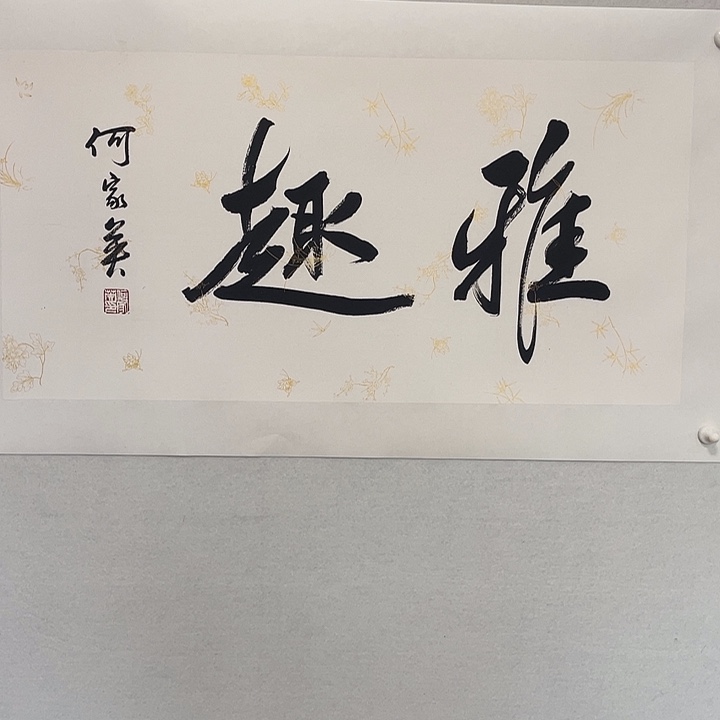 雅趣
何家英